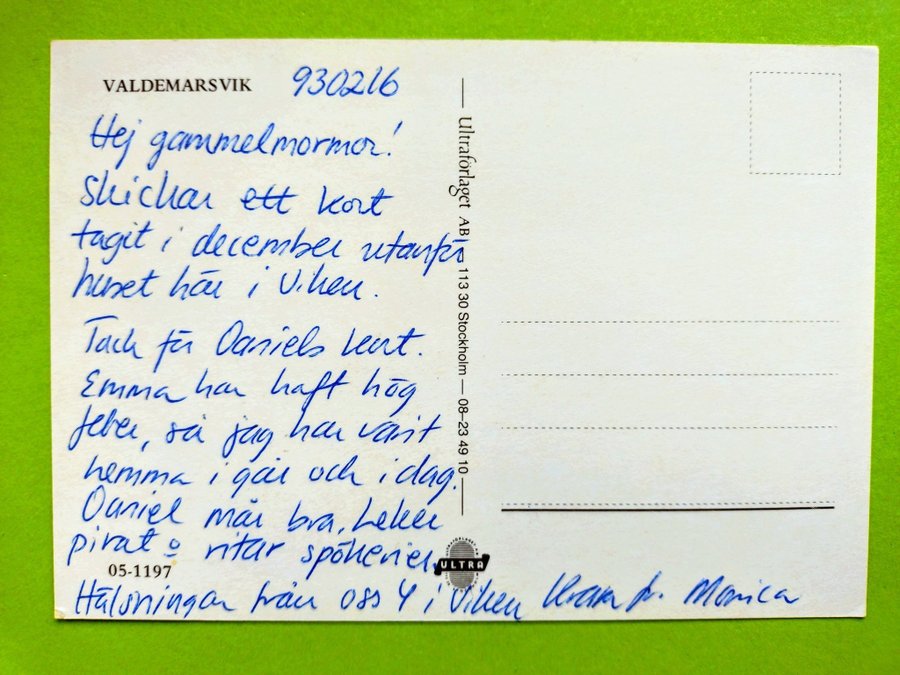 VALDEMARSVIK 930216
Hej gammelmormor!
Skickar ett kort
tagit i december utanför
huset här i Viken.
Tack för Daniels kort.
Emma har haft hög
feber, så jag har varit
hemma i går och idag.
Daniel mår bra. Leker
pirat o ritar spökerier.
05-1197
Hälsningar från oss 4 i Viken Kram fr. Monica
Ultraförlaget AB — 113 30 Stockholm — 08–23 49 10
ULTRA